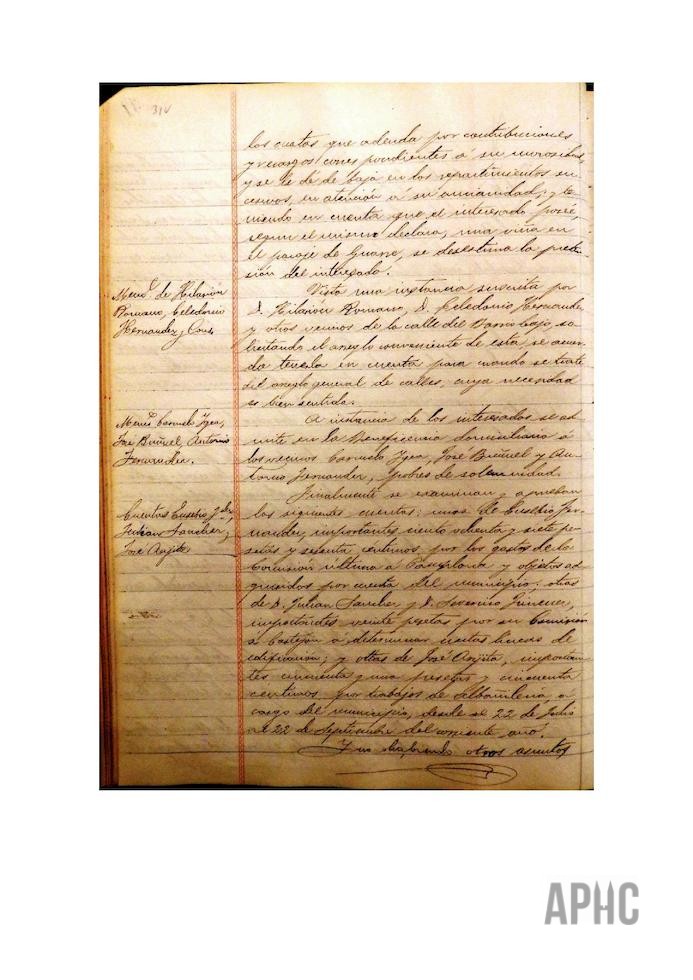 314
las cuotas que adeuda por contribuciones
y recargos correspondientes á su morosidad,
y se le dé de baja en los repartimientos su-
cesivos, en atención á su ancianidad; y te-
niendo en cuenta que el interesado posée,
segun el mismo declara, una viña en
el paraje de, se desestima la preten-
sión del interesado.
Meml. de Hilarión
Romano, Celedonio
Hernandez y Cons.
Vista una instancia suscrita por
D. Hilarión Romano, D. Celedonio Hernandez
y otros vecinos de la calle del Barrio bajo so-
licitando el arreglo conveniente de esta, se acuer-
da tenerla en cuenta para cuando se trate
del arreglo general de calles, cuya necesidad
es bien sentida.
José Buñuel, Antonio
Fernandez.
A instancia de los interesados se ad-
mite en la Beneficencia domiciliaria á
los vecinos, José Buñuel y An-
tonio Fernandez, pobres de solemnidad.
Cuentas Eusebio
Julian Sanchez,
José Anjito
Finalmente se examinan y aprueban
las siguientes cuentas: unas de Eusebio Fer-
nandez, importantes ciento ochenta y siete pe-
setas y sesenta centimos, por los gastos de la
Comisión última á Pamplona y objetos ad-
quiridos por cuenta del municipio; otras
de D. Julian Sanchez y D. Severino Jimenez,
importantes veinte pesetas por su Comisión
á Castejón á determinar ciertas lineas de
edificación; y otras de José Anjito, importan-
tes cincuenta y una pesetas y cincuenta
centimos por trabajos de albañileria á
cargo del municipio, desde el 22 de Julio
al 22 de Septiembre del corriente año.
Y no habiendo otros asuntos
APHC